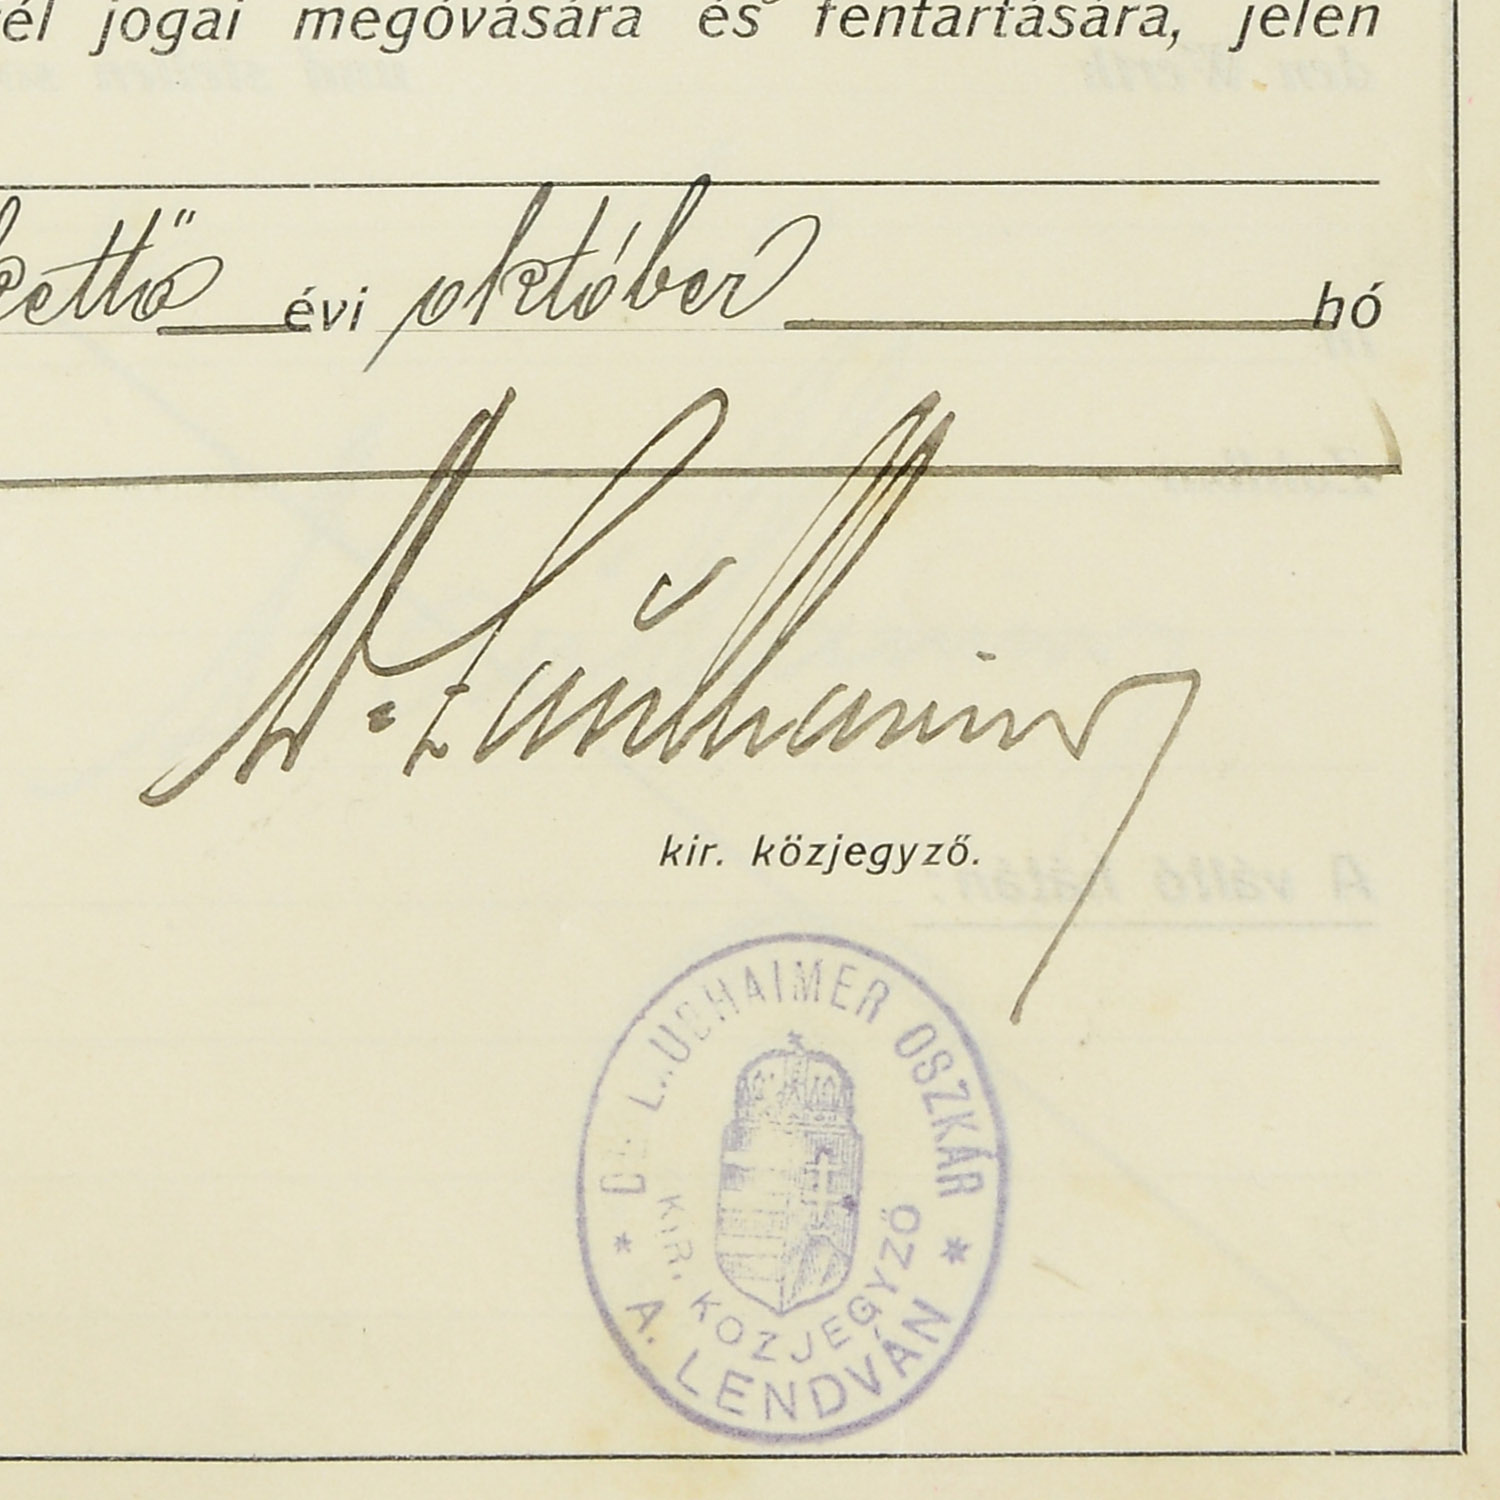 él jogai megóvására és fentartására, jelen
kettő évi október hó
kir. közjegyző.
LAUBHAIMER OSZKÁR
KIR. KÖZJEGYZŐ
A. LENDVÁN